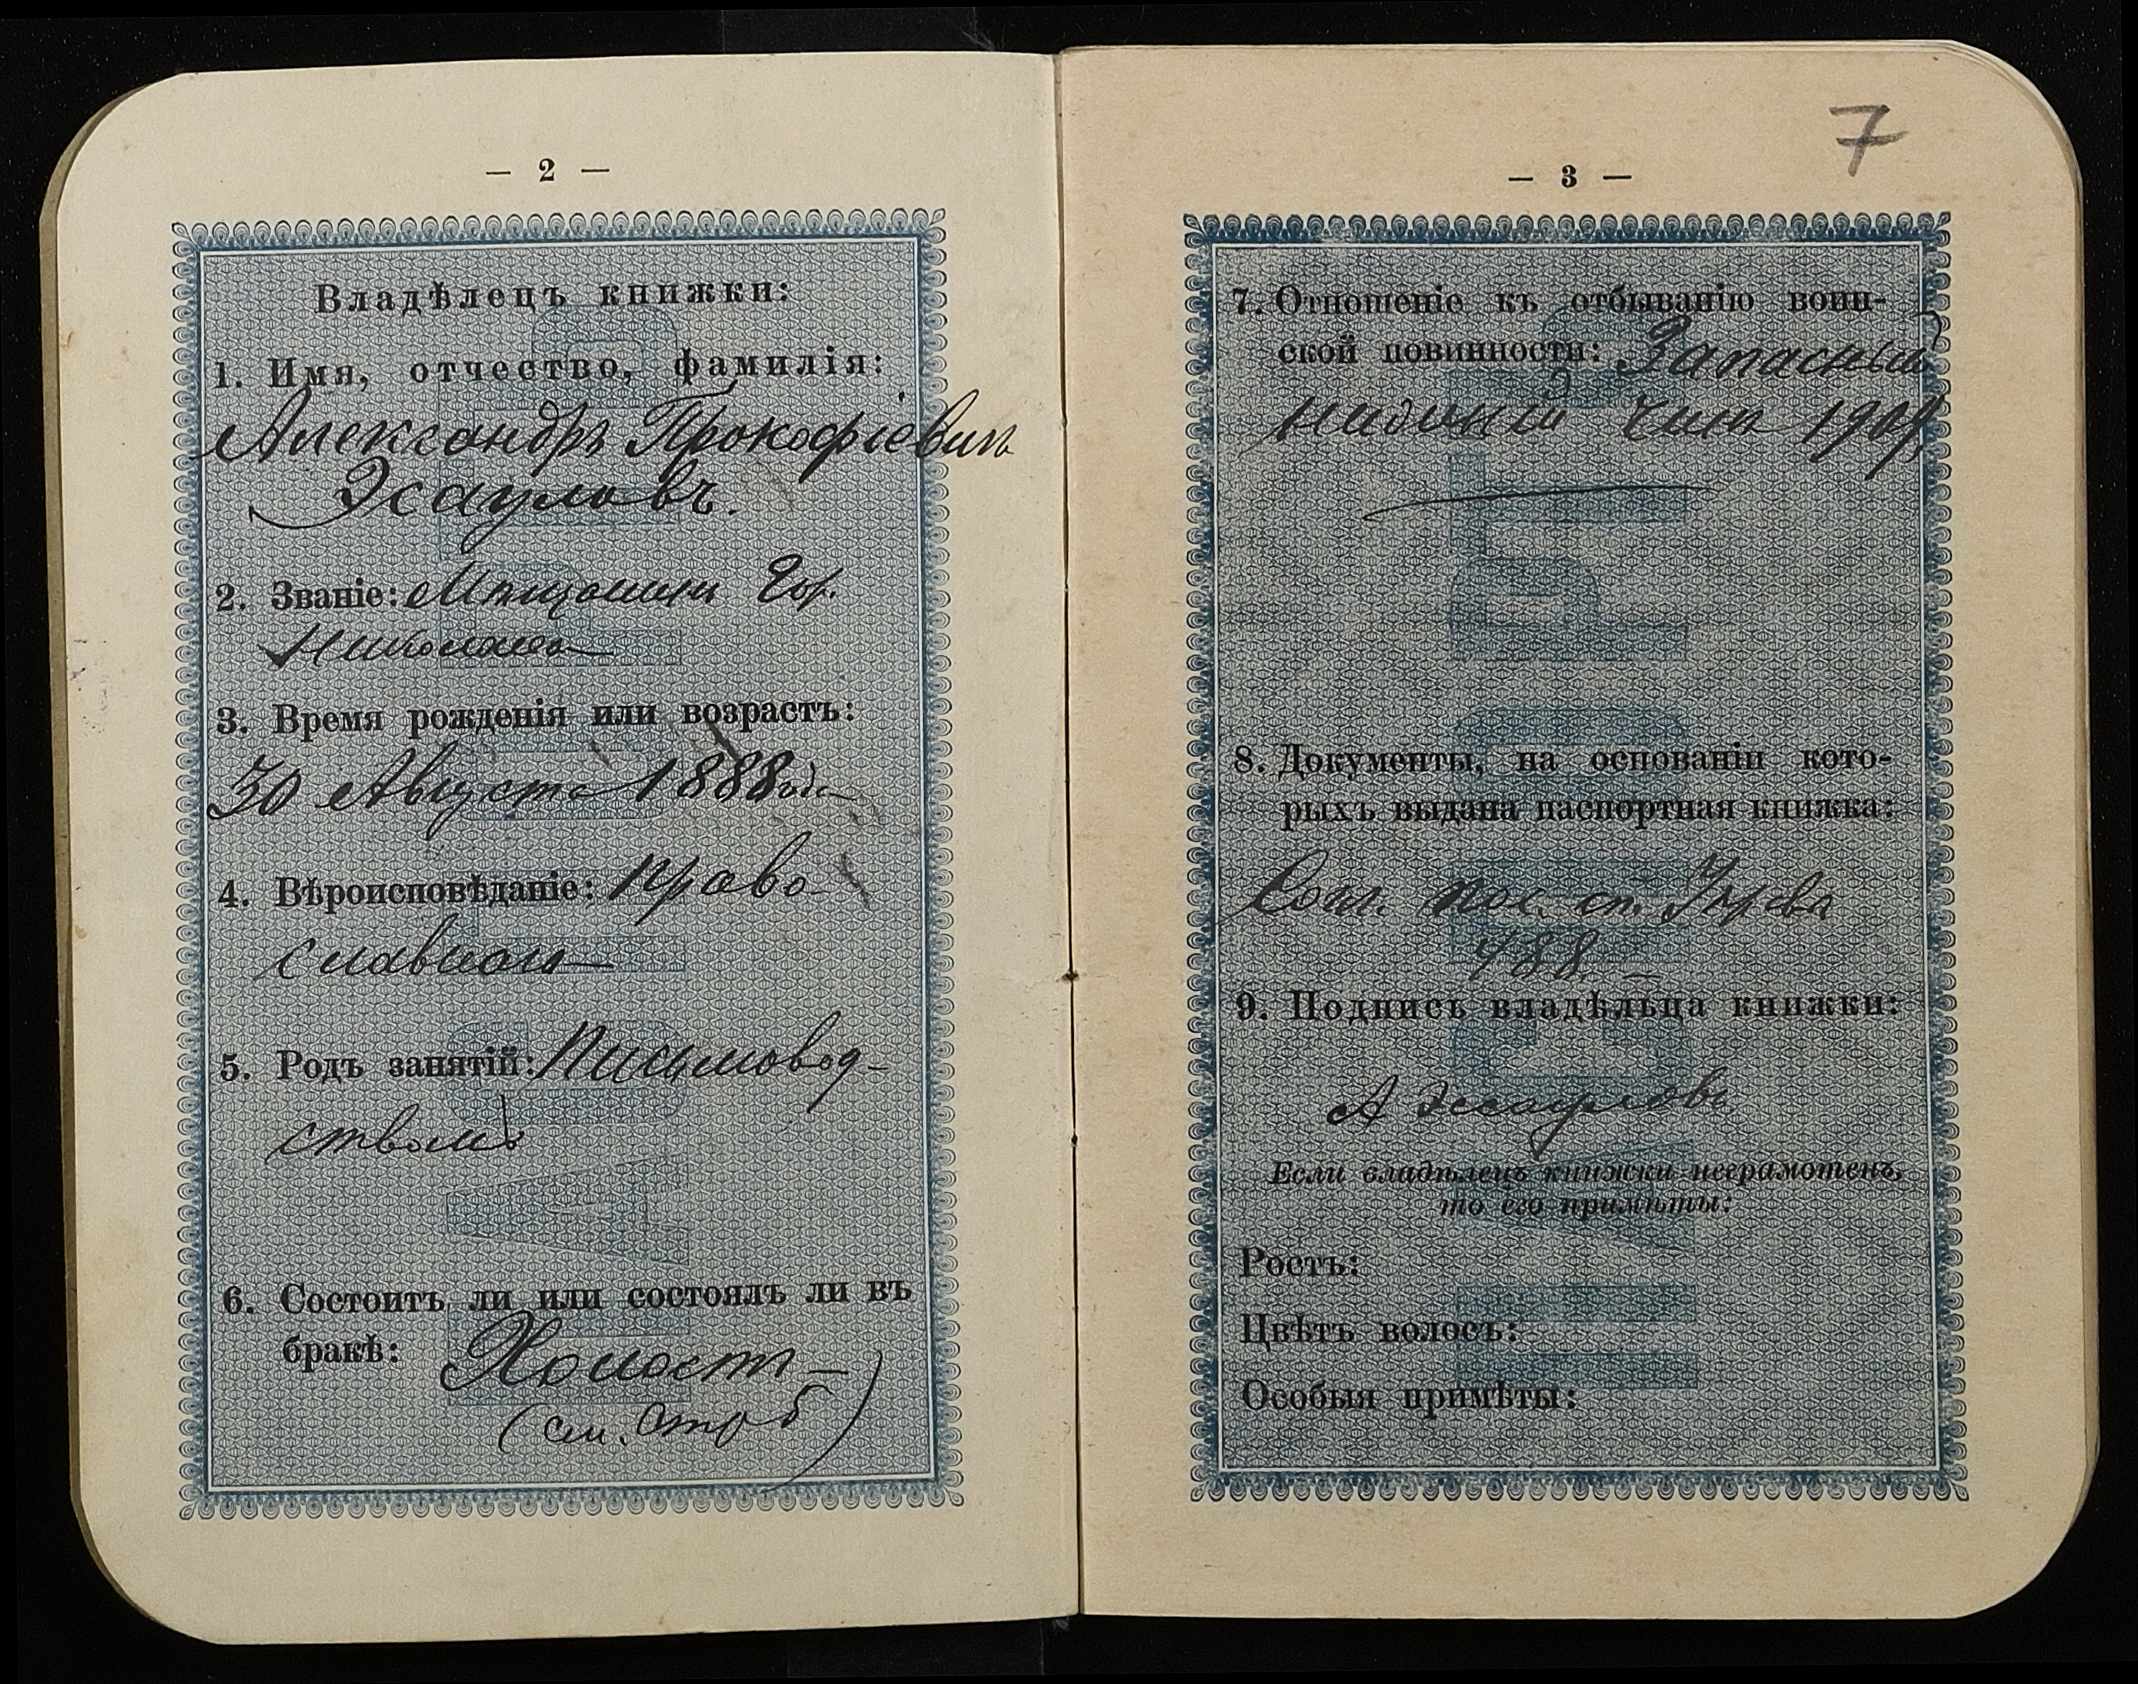 — 2 —
Владѣлецъ книжки:
1. Имя, отчество, фамилія:
Александръ Прокофіевичъ
Эсауловъ.
2. Званіе: Мѣщанинъ Гор.
Николаева
3. Время рожденія или возрастъ:
30 Августа 1888 года
4. Вѣроисповѣданіе: Право-
славнаго
5. Родъ занятій: Письмовод-
ствомъ
6. Состоитъ ли или состоялъ ли въ
бракѣ: Холостъ
(см. стр 6)
7
— 3 —
7. Отношеніе къ отбыванію воин-
ской повинности: Запасный
нижній чинъ 1909
8. Документы, на основаніи кото-
рыхъ выдана паспортная книжка:
пос. сп. Управы
488.
9. Подпись владѣльца книжки:
А Эсауловъ
Если владѣлецъ книжки неграмотенъ,
то его примѣты:
Ростъ:
Цвѣтъ волосъ:
Особыя примѣты:
ПАСПОРТЪ